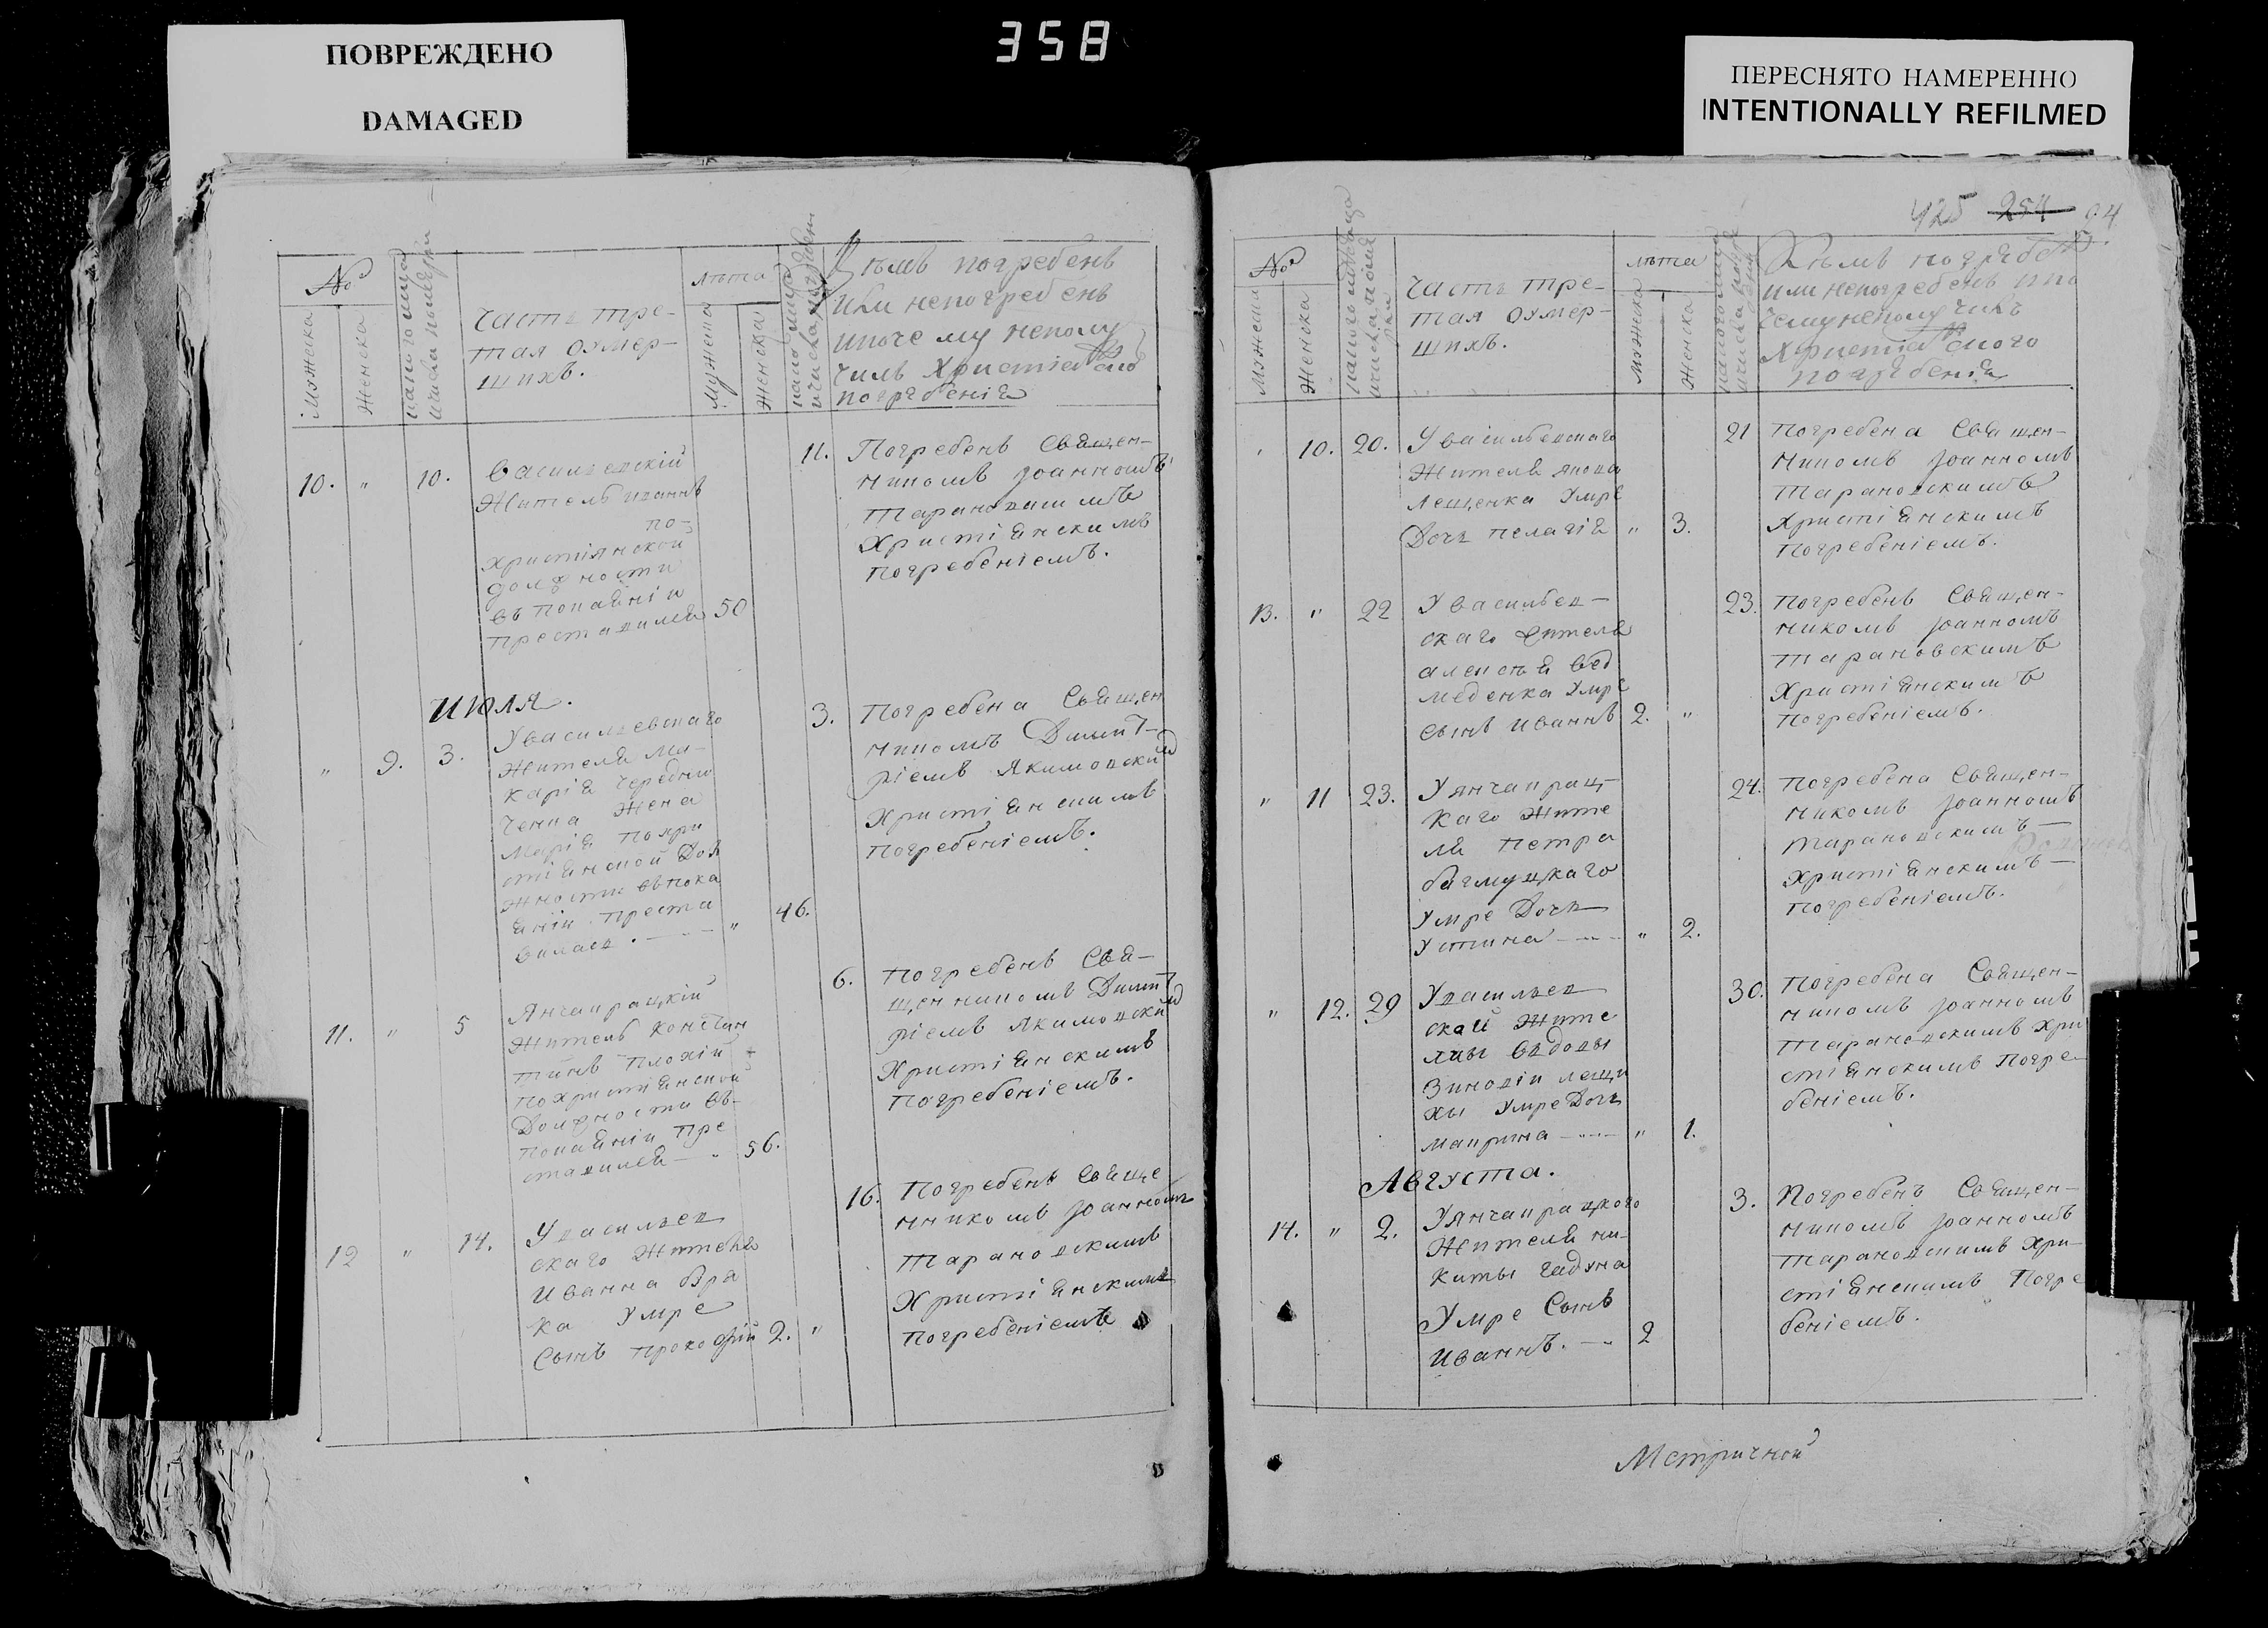 ПОВРЕЖДЕНО
DAMAGED
358
ПЕРЕСНЯТО НАМЕРЕННО
INTENTIONALLY REFILMED
№
Женска
часть тре-
тая оумер-
шихъ.
лѣта
Женска
Кѣмъ погребенъ
или непогребенъ
ипоче му неполу
чилъ Христіанско
погребенія
10. " 10. Василевскій
Житель Иваннъ
по-
христіянской
должности
въ покаяніи
преставился 50
11. Погребенъ Священ-
никомъ Іоанномъ
Тарановскимъ
Христіянскимъ
погребеніемъ.
Июля.
" 9. 3. У василевскаго
Жителя Ма-
карія Чередни
ченка Жена
Марія похри
стіянской дол
жности въ пока
яніи преста
вилась. " 46.
3. Погребена Священ
никомъ Димит-
ріемъ Якимовский
Христіянскимъ
погребеніемъ.
11. " 5 Янчапрацкій
Житель Констан
тинъ Плохій
похристіянской
Должности въ-
покаяніи пре
ставился " 56.
6. Погребенъ Свя-
щенникомъ Димит
ріемъ Якимовский
Христіянскимъ
Погребеніемъ.
12 " 14. У василев
скаго Жителя
Иванна Вра
ка Умре
Сынъ прокофій 2. "
16. Погребенъ Свяще
нникомъ Іоанномъ
Тарановскимъ
Христіянскимъ
погребеніемъ
425 254
№
Женска
часть тре-
тая оумер-
шихъ.
лѣта
Женска
Кѣмъ погребенъ
или непогребенъ ипо
чему неполучилъ
Христіанского
погребенія
10. 20. У васильевскаго
Жителя якова
Лещенка Умре
Дочь пелагія " 3.
21 Погребена Священ-
никомъ Іоанномъ
Тарановскимъ
Христіянскимъ
погребеніемъ.
13. " 22 У васильев-
скаго жителя
алексѣя вед
меденка Умре
сынъ Иваннъ 2. "
23. Погребенъ Священ-
никомъ Іоанномъ
тарановскимъ
Христіянскимъ
погребеніемъ.
" 11 23. У янчапрац-
каго Жите
ля петра
бахмуцкаго
Умре Дочь
Устина " 2.
24. Погребена Священ-
никомъ Іоанномъ
Тарановскимъ
Христіянскимъ
Погребеніемъ.
" 12. 29 У василев
ской Жите
лки вдовы
Зиновіи лещи
хи Умре Дочь
макрина " 1.
30. Погребена Священ-
никомъ Іоанномъ
Тарановскимъ Хри
стіянскимъ Погре
беніемъ.
Августа.
14. " 2. У янчапрацкого
Жителя ни-
киты
Умре Сынъ
Иваннъ. 2
3. Погребенъ Священ-
никомъ Іоанномъ
Тарановскимъ Хри-
стіянскимъ Погре
беніемъ.
Метричной